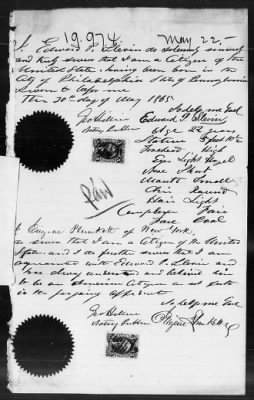 19.974. May 22,-
I, Edward P. Slevin do solemnly sincerely
and truly swear that I am a Citizen of the
United States, having been born in the
City of Philadelphia State of Pennsylvania
Sworn to before me
this 20th day of May 1865.
So help me God
Edward P. Slevin
Notary Public
Age 22 years
Stature 5 foot
Forehead High
Eyes Light Hazel
Nose Short
Mouth Small
Chin Round
Hair Light
Complexion Fair
Face Oval
Paid
I, Eugene Plunkett of New York,
do swear that I am a Citizen of the United
States and I do further swear that I am
acquainted with Edward P. Slevin and
have always understood and believed him
to be an American Citizen as set forth
in the foregoing affidavit
So help me God
Notary Public
Eugene Plunkett